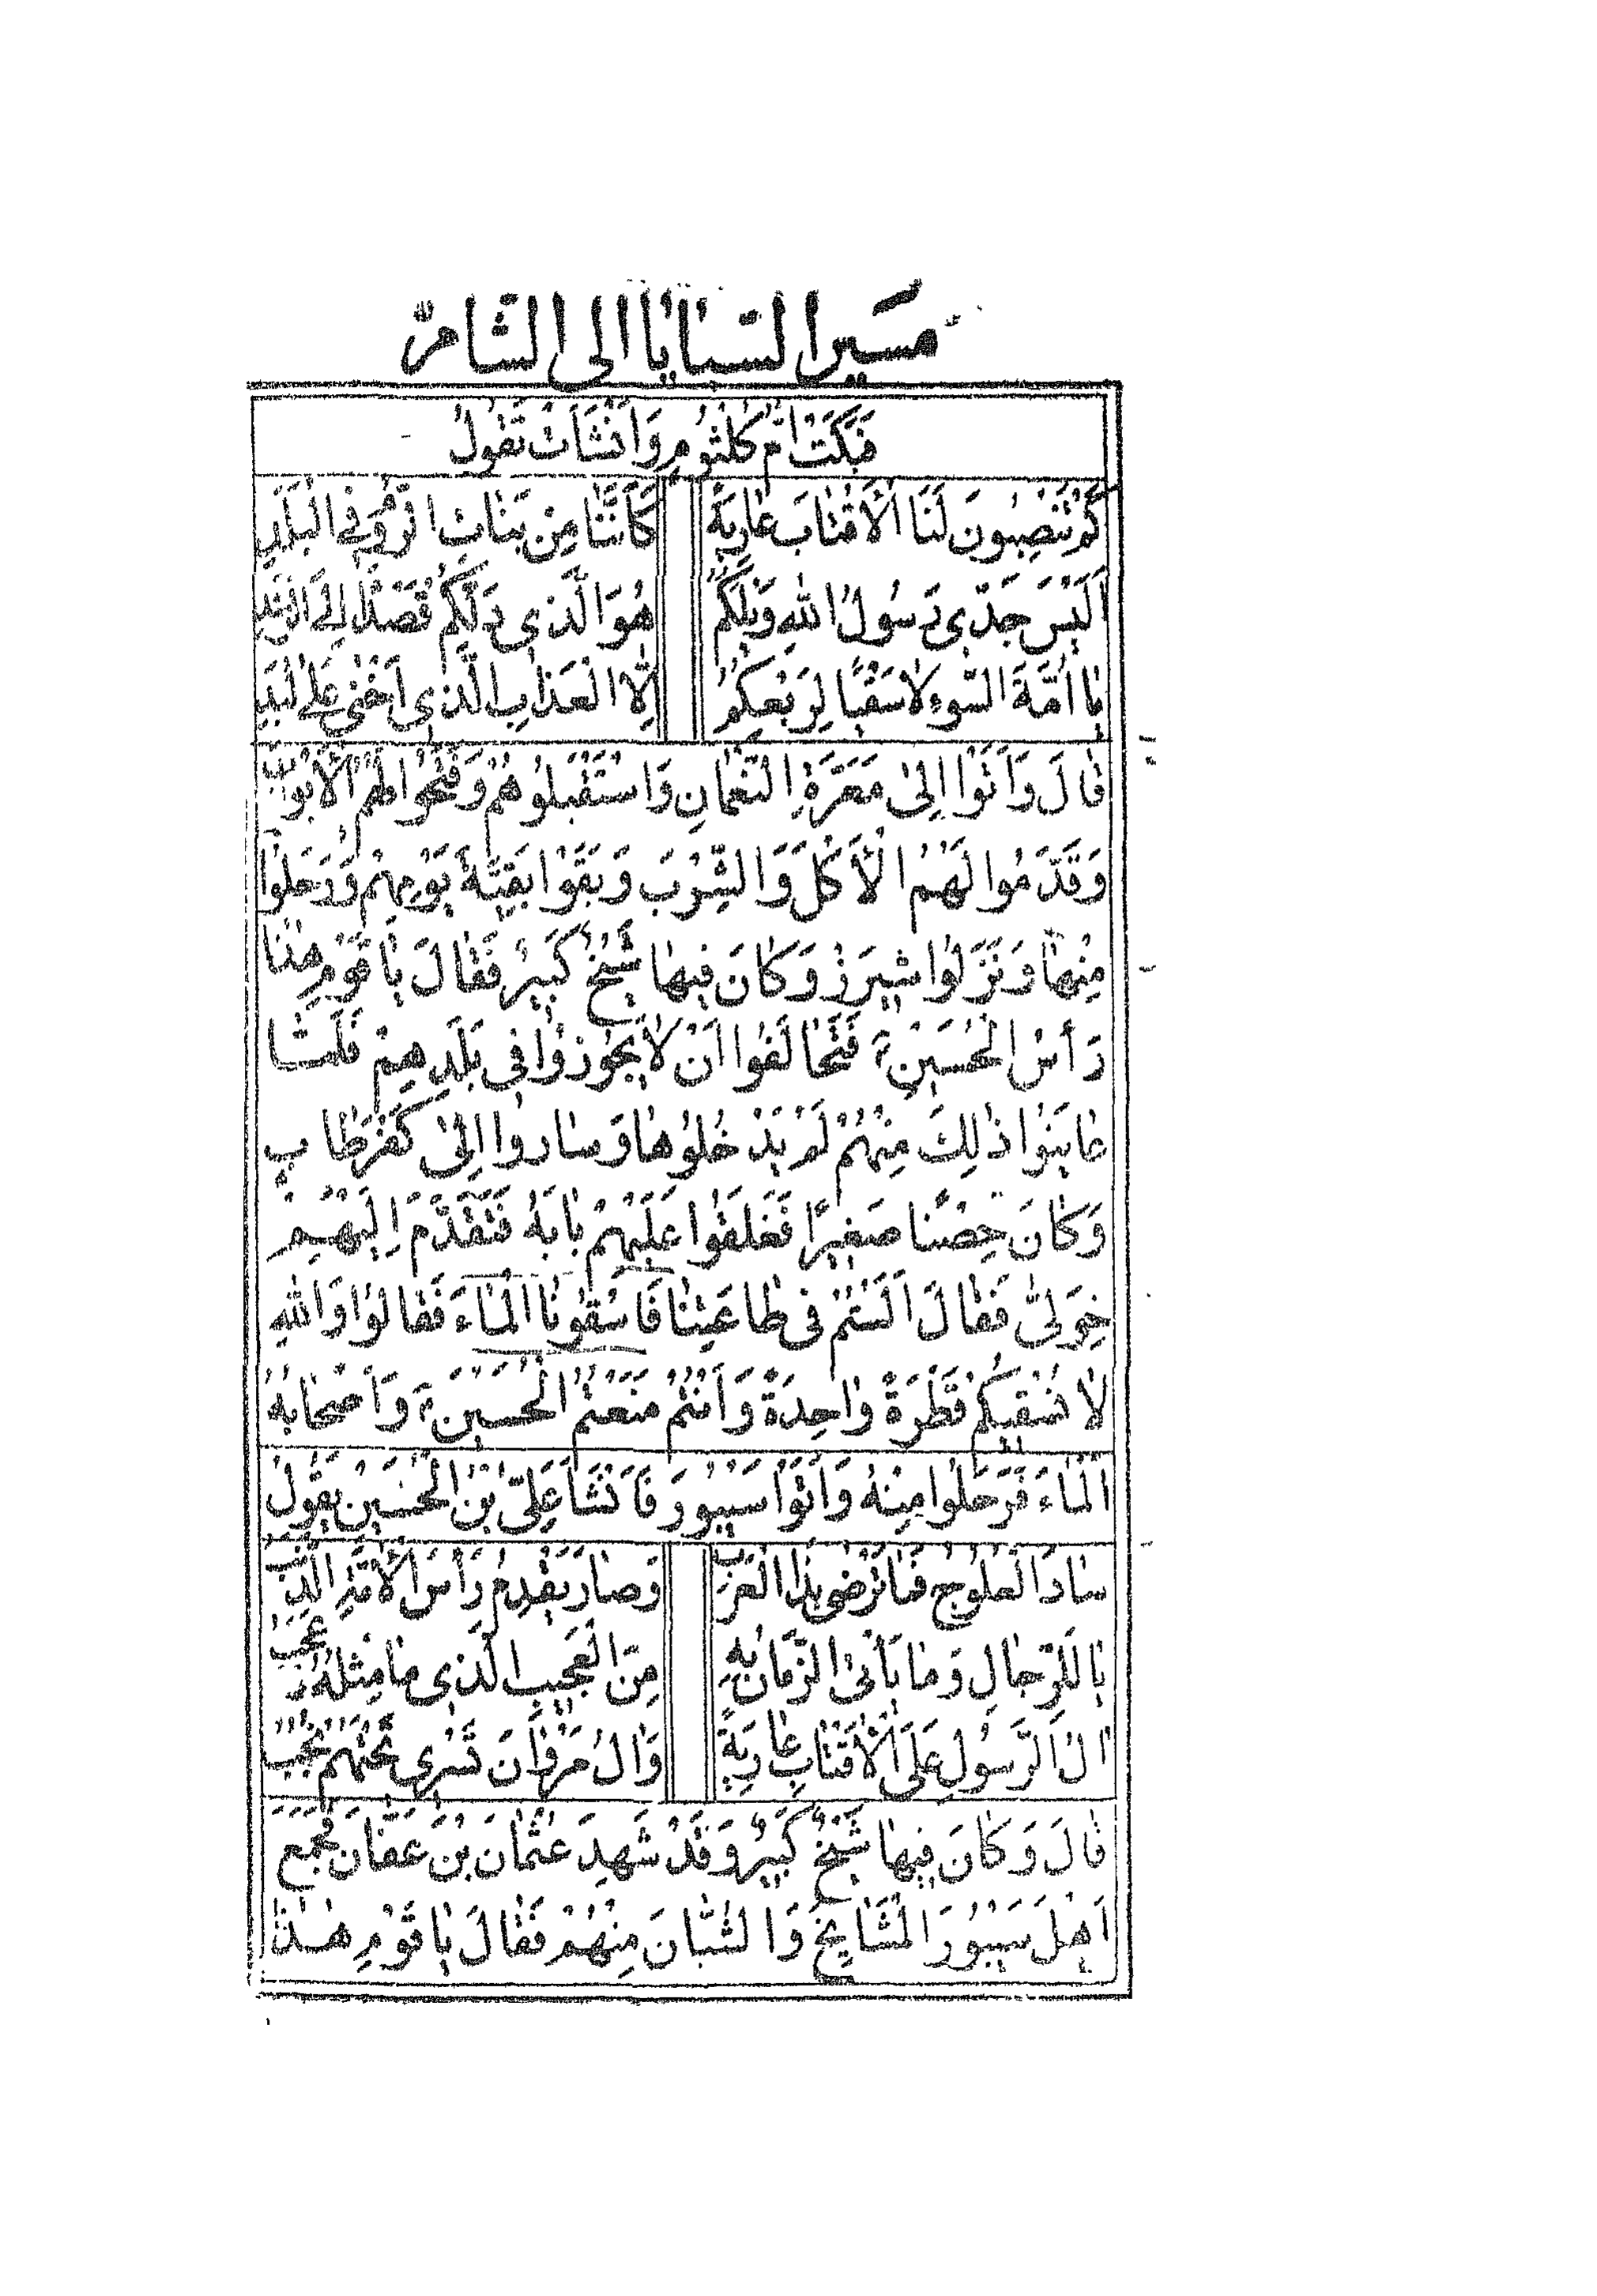 مسير السبايا الى الشام
فَبَكَتْ اُمُّ كُلْثُومٍ وَاَنْشَاَتْ تَقُولُ
كَمْ تَنْصِبُونَ لَنَا الْاَقْتٰابَ عٰارِيَةً كَاَنَّنٰا مِنْ بَنٰاتِ الرُّومِ فِى الْبَلَدِ
اَلَيْسَ جَدّى رَسُولُ اللهِ وَيْلَكُمُ هُوَ الَّذى دَلَّكُمْ قَصْدًا اِلَى الرَّشَدِ
يٰا اُمَّةَ السَّوْءِ لٰا سَقْيًا لِرَبْعِكُمُ اِلَّا الْعَذٰابِ الَّذى اَخْنىٰ عَلىٰ لُبَدِ
قٰالَ وَاَتَوْا اِلىٰ مَعَرَّةِ النُّعْمٰانِ وَاسْتَقْبَلُوهُمْ وَفَتَحُوا لَهُمُ الْاَبْوابَ
وَقَدَّمُوا لَهُمُ الْاَكْلَ وَالشِّرْبَ وَبَقَوْا بَقِيَّةَ يَوْمِهِمْ وَرَحَلُوْا
مِنْهٰا وَنَزَلُوا شيزَرْ وَكٰانَ فيهٰا شَيْخٌ كَبيرٌ فَقٰالَ يٰا قَوْمِ هٰذٰا
رَأْسُ الْحُسَيْنِ ع فَتَحٰالَفُوا اَنْ لٰا يَجُوزُوْا فى بَلَدِهِمْ فَلَمّٰا
عٰايَنُوْا ذٰلِكَ مِنْهُمْ لَمْ يَدْخُلُوهٰا وَسٰاروا اِلىٰ كَفَرْطٰابٍ
وَكٰانَ حِصْنًا صَغيرًا فَغَلَقُوْا عَلَيْهِمْ بٰابَهُ فَتَقَدَّمَ اِلَيْهِمْ
خِوَلىّٰ فَقٰالَ اَلَسْتُمْ فى طٰاعَتِنٰا فَاسْقُونَا الْمٰاءَ فَقٰالُوْا وَاللهِ
لٰا نَسْقيكُمْ قَطْرَةً وٰاحِدَةً وَاَنْتُمْ مَنَعْتُمُ الْحُسَيْنَ ع وَاَصْحٰابَهُ
الْمٰاءَ فَرَحَلُوا مِنْهُ وَاَتَوْا سَيْبُورَ فَاَنْشَاَ عَلِىُّ بْنُ الْحُسَيْنِ يَقُولُ
سٰادَ الْعُلُوجُ فَمٰا تَرْضىٰ بِذَا الْعَرَبُ وَصٰارَ يَقْدِمُ رَأْسَ الْاُمَّةِ الذَّنَبُ
يٰا لَلرِّجٰالِ وَمٰا يَأْتى الزَّمٰانُ بِهِ مِنَ الْعَجيبِ الَّذى مٰا مِثْلُهُ عَجَبُ
اٰلُ الرَّسُولِ عَلَى الْاَقْتٰابِ عٰارِيَةٍ وَاٰلُ مَرْوٰانَ تَسْرى تَحْتَهُمْ نُجُبُ
قٰالَ وَكٰانَ فيهٰا شَيْخٌ كَبيرٌ وَقَدْ شَهِدَ عُثْمٰانَ بْنَ عَفّٰانَ فَجَمَعَ
اَهْلَ سَيْبُورَ الْمَشٰايِخَ وَالشُّبّٰانَ مِنْهُمْ فَقٰالَ يٰا قَوْمِ هٰذٰا